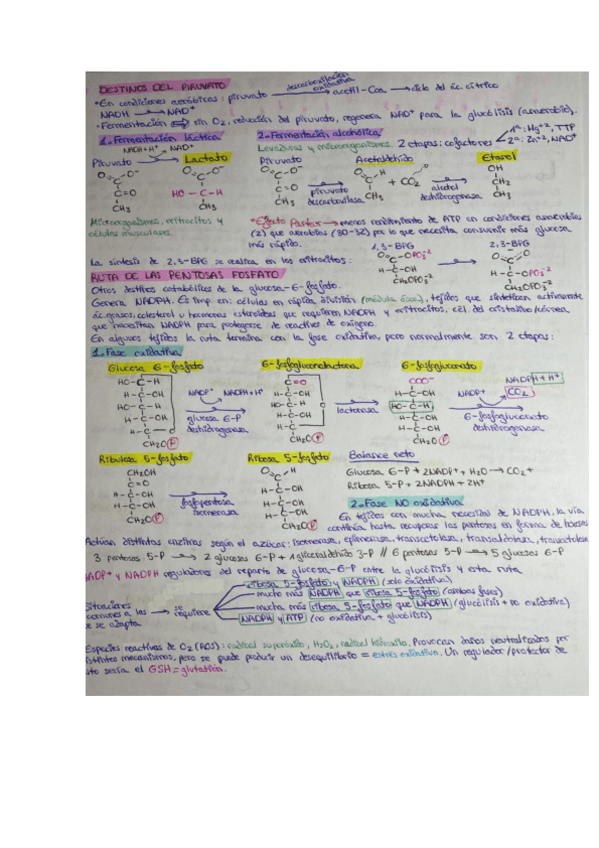 DESTINOS DEL PIRUVATO
• En condiciones aeróbicas: piruvato descarboxilación oxidativa → acetil-Coa → ciclo del ác. cítrico
NADH → NAD⁺
• Fermentación ⇒ sin O₂, reducción del piruvato, regenera NAD⁺ para la glucólisis (anaerobia).
1. Fermentación láctica 2. Fermentación alcohólica
NADH+H⁺ NAD⁺ Levaduras y microorganismos. 2 etapas: cofactores 1ª: Mg⁺², TTP
2ª: Zn⁺², NAD⁺
Piruvato Lactato Piruvato Acetaldehído Etanol
piruvato descarboxilasa + CO₂ alcohol deshidrogenasa
Microorganismos, eritrocitos y células musculares.
*Efecto Pasteur → menos rendimiento de ATP en condiciones anaerobias
(2) que aerobias (30-32) por lo que necesita consumir más glucosa
más rápido.
1,3-BPG 2,3-BPG
La síntesis de 2,3-BPG se realiza en los eritrocitos:
RUTA DE LAS PENTOSAS FOSFATO
Otros destinos catabólicos de la glucosa-6-fosfato.
Genera NADPH. Es imp. en: células en rápida división (médula ósea), tejidos que sintetizan activamente
ác. grasos, colesterol u hormonas esteroideas que requieren NADPH y eritrocitos, cél. del cristalino/córnea
que necesitan NADPH para protegerse de reactivos de oxígeno.
En algunos tejidos la ruta termina con la fase oxidativa, pero normalmente son 2 etapas:
1. Fase oxidativa
Glucosa 6-fosfato 6-fosfogluconolactona 6-fosfogluconato
NADP⁺ NADPH+H⁺ NADP⁺ NADPH+H⁺
CO₂
glucosa 6-P deshidrogenasa lactonasa 6-fosfogluconato deshidrogenasa
Ribulosa 5-fosfato Ribosa 5-fosfato Balance neto
Glucosa 6-P + 2NADP⁺ + H₂O → CO₂ +
fosfopentosa isomerasa Ribosa 5-P + 2NADPH + 2H⁺
2. Fase NO oxidativa
En tejidos con mucha necesidad de NADPH, la vía
continúa hasta recuperar las pentosas en forma de hexosas
Actúan distintas enzimas según el azúcar: isomerasa, epimerasa, transcetolasa, transaldolasa, transcetolasa
3 pentosas 5-P → 2 glucosas 6-P + 1 gliceraldehído 3-P // 6 pentosas 5-P → 5 glucosas 6-P
NADP⁺ y NADPH reguladores del reparto de glucosa-6-P entre la glucólisis y esta ruta
ribosa 5-fosfato y NADPH (solo oxidativa)
Situaciones comunes a las que se adapta → se requiere mucho más NADPH que ribosa 5-fosfato (ambas fases)
mucha más ribosa 5-fosfato que NADPH (glucólisis + no oxidativa)
NADPH y ATP (no oxidativa + glucólisis)
Especies reactivas de O₂ (ROS): radical superóxido, H₂O₂, radical hidroxilo. Provocan daños neutralizados por
distintos mecanismos, pero se puede producir un desequilibrio = estrés oxidativo. Un regulador/protector de
esto sería el GSH = glutatión.